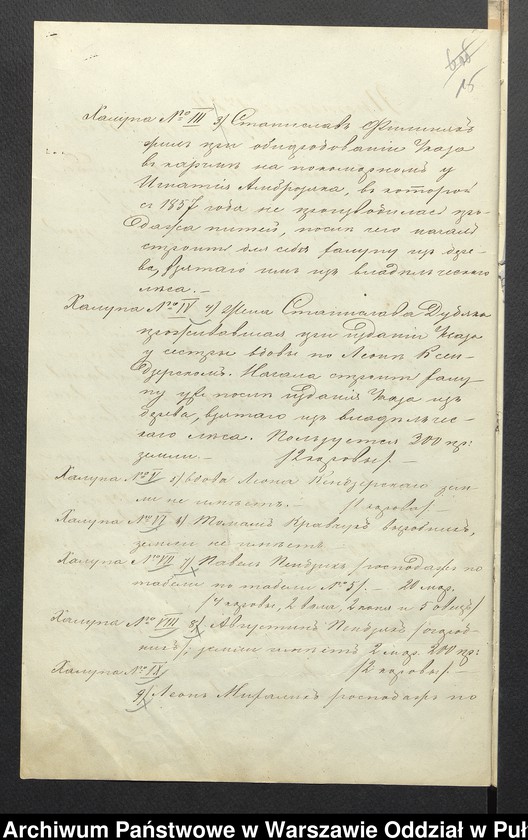 15
Халупа № III 3) Станиславъ Филипякъ
жилъ при обнародованіи Указа
въ карчмѣ на покоморномъ у
Игнатія Амброзяка, въ которой
съ 1857 года не производилась про-
дажа питей, послѣ чего началъ
строить для себя халупу изъ дере-
ва, взятаго имъ изъ владѣльческаго
лѣса. —
Халупа № IV 4) Жена Станислава Дубяка
проживавшая при изданіи Указа
у сестры вдовы по Леонѣ Ксен-
дзерскомъ. Начала строить халу-
пу уже послѣ изданія Указа изъ
дерева, взятаго изъ владѣльчес-
каго лѣса. Пользуется 200 пр:
земли. — /2 коровы/. —
Халупа № V 5) Вдова Леона Ксендзерскаго зем-
ли не имѣетъ. — /1 корова/ —
Халупа № VI 6) Томашъ Кравчукъ
земли не имѣетъ —
Халупа № VII 7) Павелъ /господарь по
табели по табели № 5/. — 20 мор.
/4 коровы, 2 вола, 2 коня и 5 овецъ/
Халупа № VIII 8) Августинъ /огород-
никъ/, земли имѣетъ 2 мор. 200 пр:
/2 коровы/. —
Халупа № IX
9) Леонъ Михалякъ /господарь по
Archiwum Państwowe w Warszawie Oddział w Puł